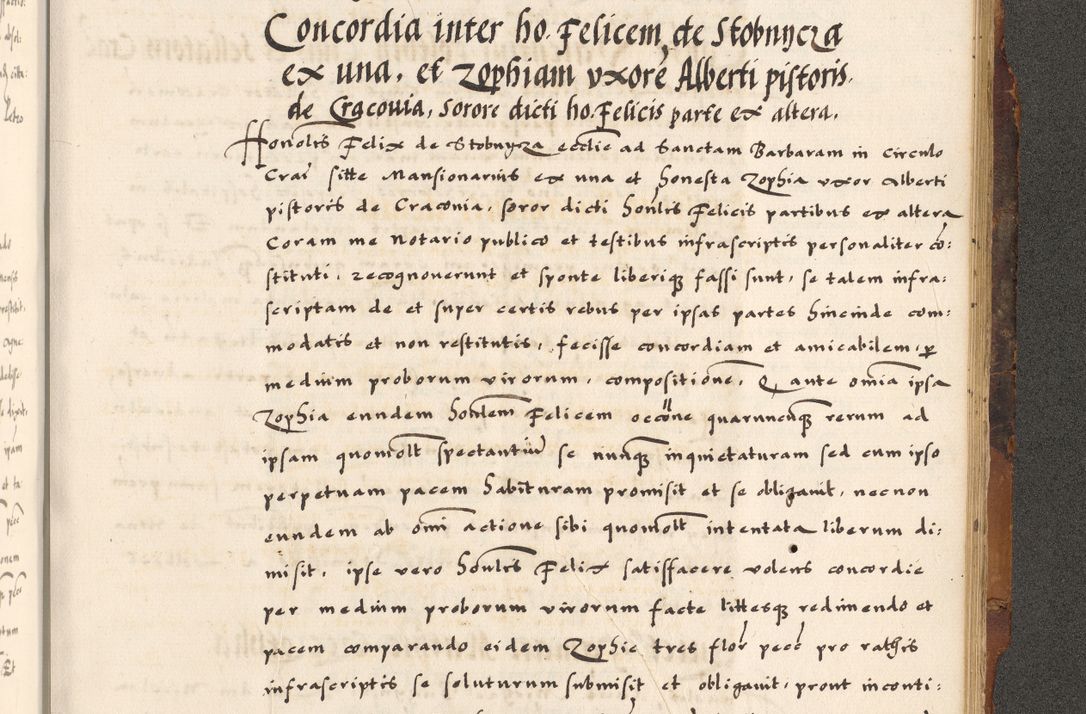 Concordia inter ho. Felicem de Stobnycza
ex una, et Zophiam vxorē Alberti pistoris
de Cracouia, sorore dicti ho. Felicis parte ex altera.
Honolis Felix de Stobnycza ecclie ad Sanctam Barbaram in Circulo
Crac sitte Mansionarius ex una et honesta Zophia vxor Alberti
pistoris de Craconia, soror dicti honlis Felicis partibus ex altera
Coram me Notario publico et testibus infrascriptis personaliter cō:
stituti, recognouerunt et sponte liberiq fassi sunt, se talem infra:
scriptam de et super certis rebus per ipsas partes hincinde com:
modatis et non restitutis, fecisse concordiam et amicabilem, p
medium proborum virorum, compositione, Q ante omia ipsa
Zophia eundem honlem Felicem occone quaruncunq rerum ad
ipsam quomolt spectantiu se nunq inquietaturam sed cum ipso
perpetuam pacem habituram promisit et se obligauit, necnon
eundem ab omi actione sibi quomolt intentata liberum di:
misit, ipse vero honlis Felix satisfacere volens concordie
per medium proborum virorum facte littesq redimendo et
pacem comparando eidem Zophie tres flor pecc pro rathis
infrascriptis se soluturum submisit et obligauit, prout inconti: